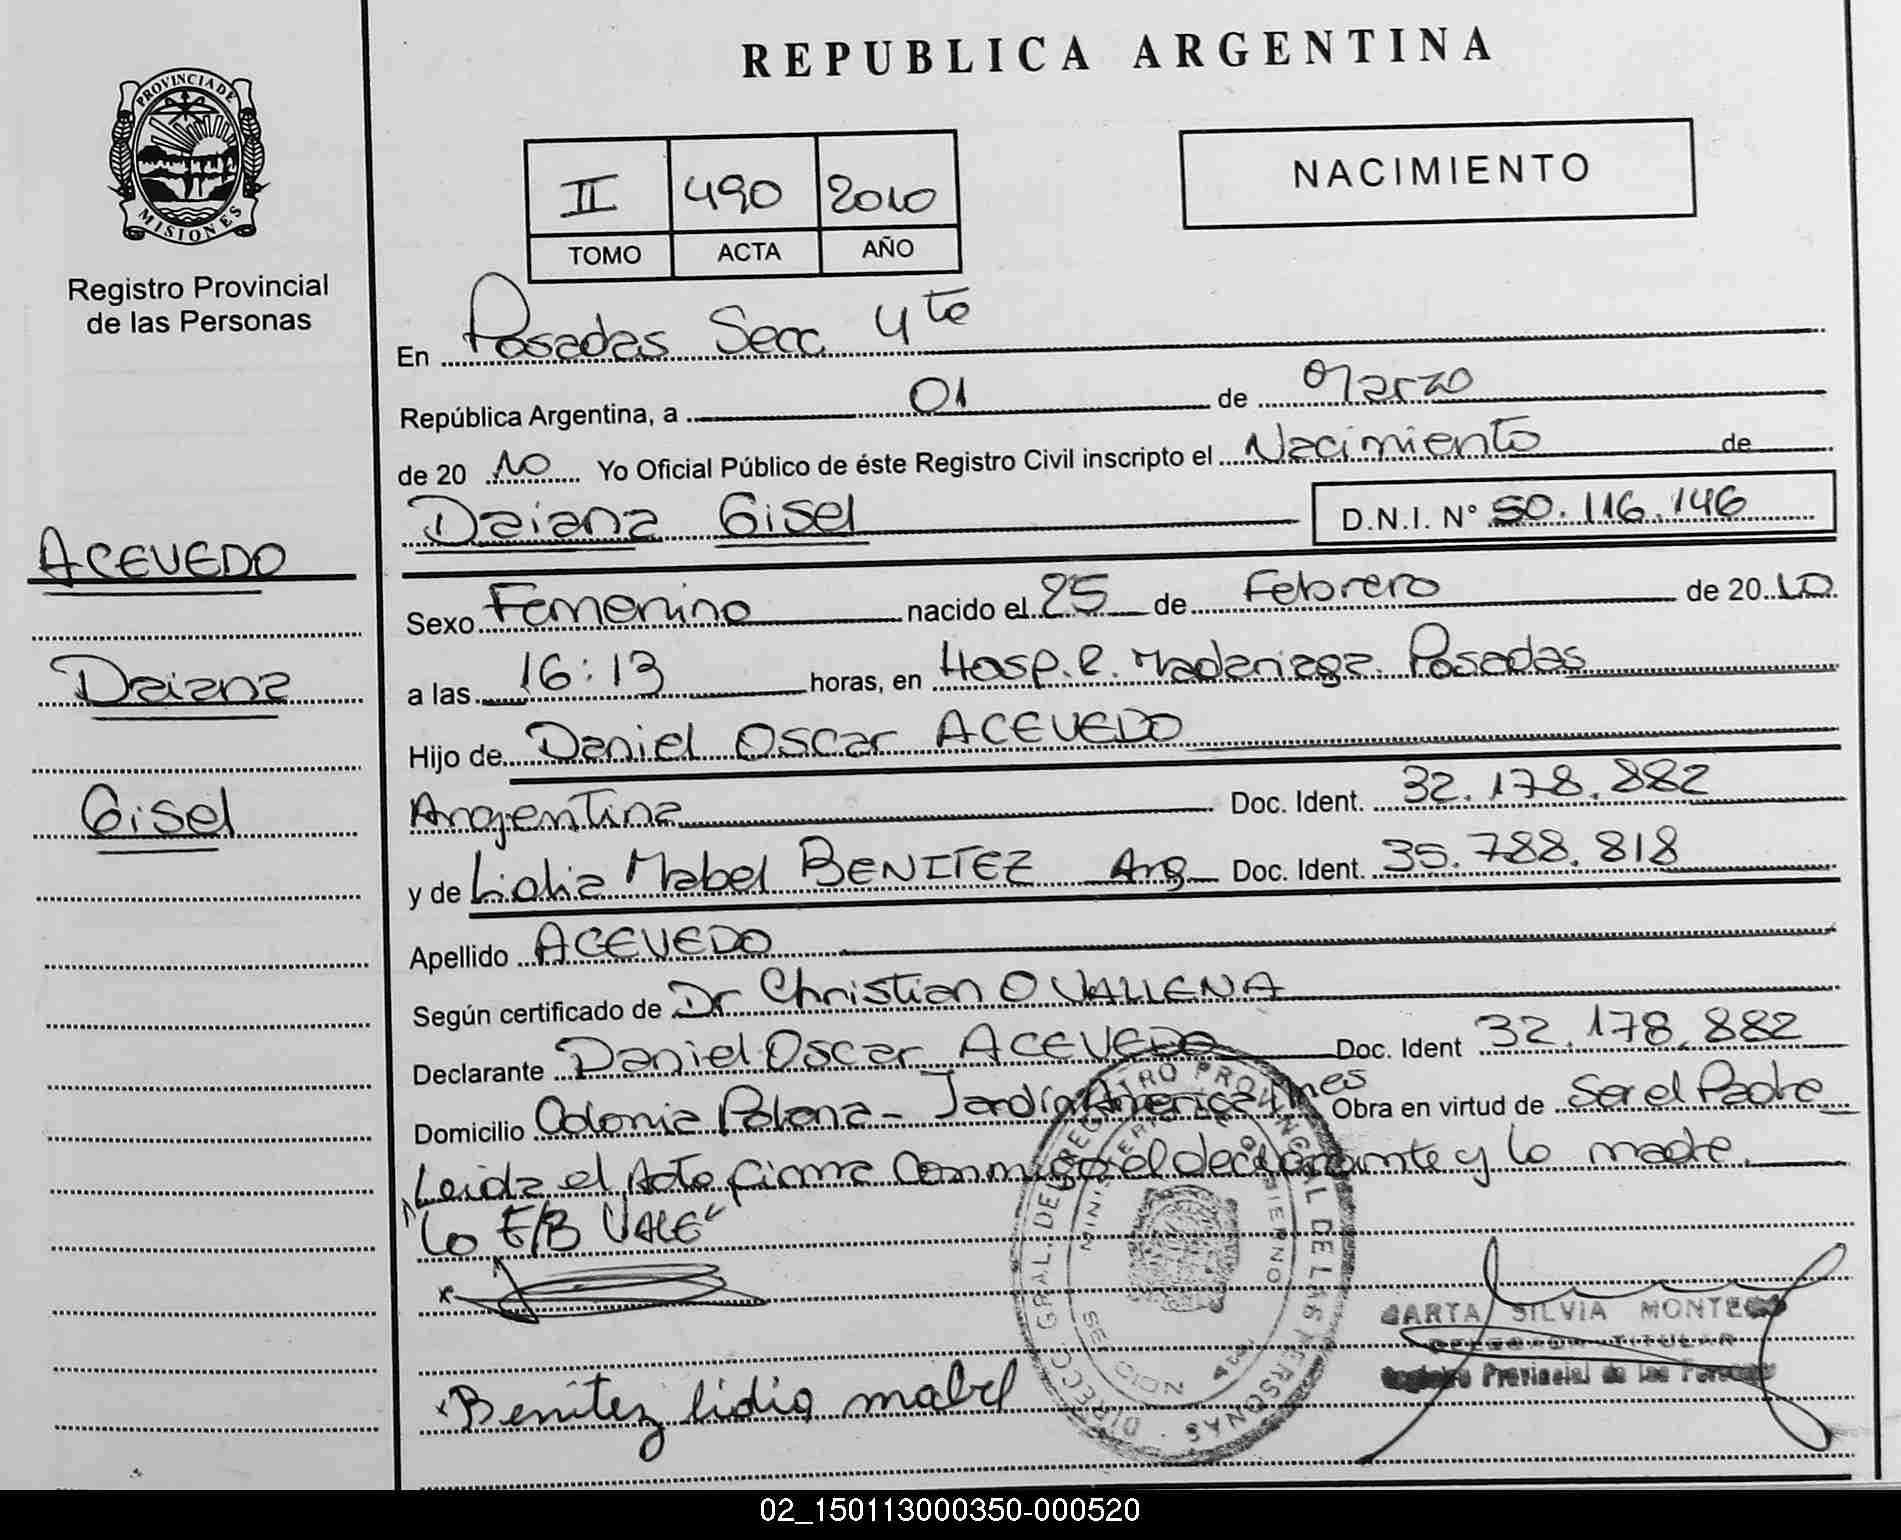 REPUBLICA ARGENTINA
PROVINCIA DE
MISIONES
Registro Provincial
de las Personas
II 490 2010
TOMO ACTA AÑO
NACIMIENTO
En Posadas Secc. 4ta
República Argentina, a 01 de Marzo
de 20 10 Yo Oficial Público de éste Registro Civil inscripto el Nacimiento de
Daiana Gisel D.N.I. N° 50.116.146
ACEVEDO
Daiana
Gisel
Sexo Femenino nacido el 25 de Febrero de 2010
a las 16:13 horas, en Hosp. R. Madariaga. Posadas
Hijo de Daniel Oscar ACEVEDO
Argentina Doc. Ident. 32.178.882
y de Lidia Mabel BENITEZ Arg Doc. Ident. 35.788.818
Apellido ACEVEDO
Según certificado de Dr Christian O VALLENA
Declarante Daniel Oscar ACEVEDO Doc. Ident 32.178.882
Domicilio Colonia Polana - Jardín América Mnes Obra en virtud de Ser el Padre
Leida el Acta firma Conmigo el declarante y la madre
"Lo E/B VALE"
Benitez lidia mabel
DIRECC. GRAL. DEL REGISTRO PROVINCIAL DE LAS PERSONAS
SILVIA MONTE
TITULAR
Provincial de las
02_150113000350-000520